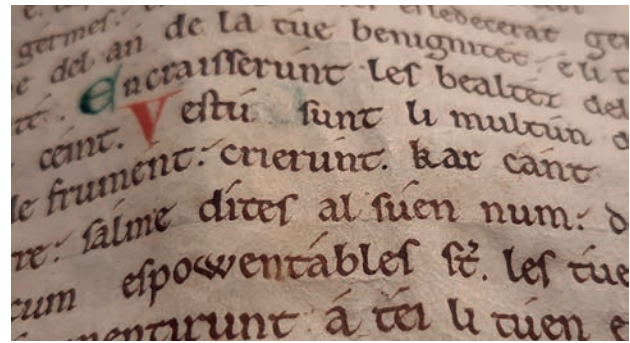 germer. enledecerat ger
e del an de la tue benignitet. e li t
Encraisserunt les bealtez del
ceint. Vestu sunt li multun d
le frument. crierunt. kar cant
re. salme dites al suen num. d
cum espowentables st. les tue
mentirunt á téi li túen e